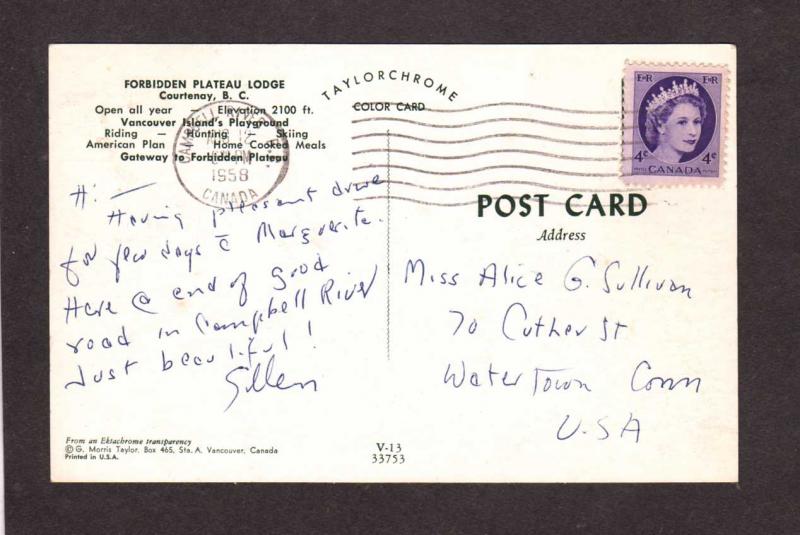 FORBIDDEN PLATEAU LODGE
Courtenay, B. C.
Open all year — Elevation 2100 ft.
Vancouver Island's Playground
Riding — Hunting — Skiing
American Plan — Home Cooked Meals
Gateway to Forbidden Plateau
TAYLORCHROME
COLOR CARD
CAMPBELL RIVER
PM
1958
CANADA
E II R E II R
4c 4c
CANADA
Hi —
Having pleasant drive
for few days c̄ Marguerite.
Here @ end of good
road in Campbell River
Just beautiful!
Ellen
POST CARD
Address
Miss Alice G. Sullivan
70 Cutler St
Watertown Conn
U.S.A
From an Ektachrome transparency
© G. Morris Taylor, Box 465, Sta. A. Vancouver, Canada
Printed in U.S.A.
V-13
33753